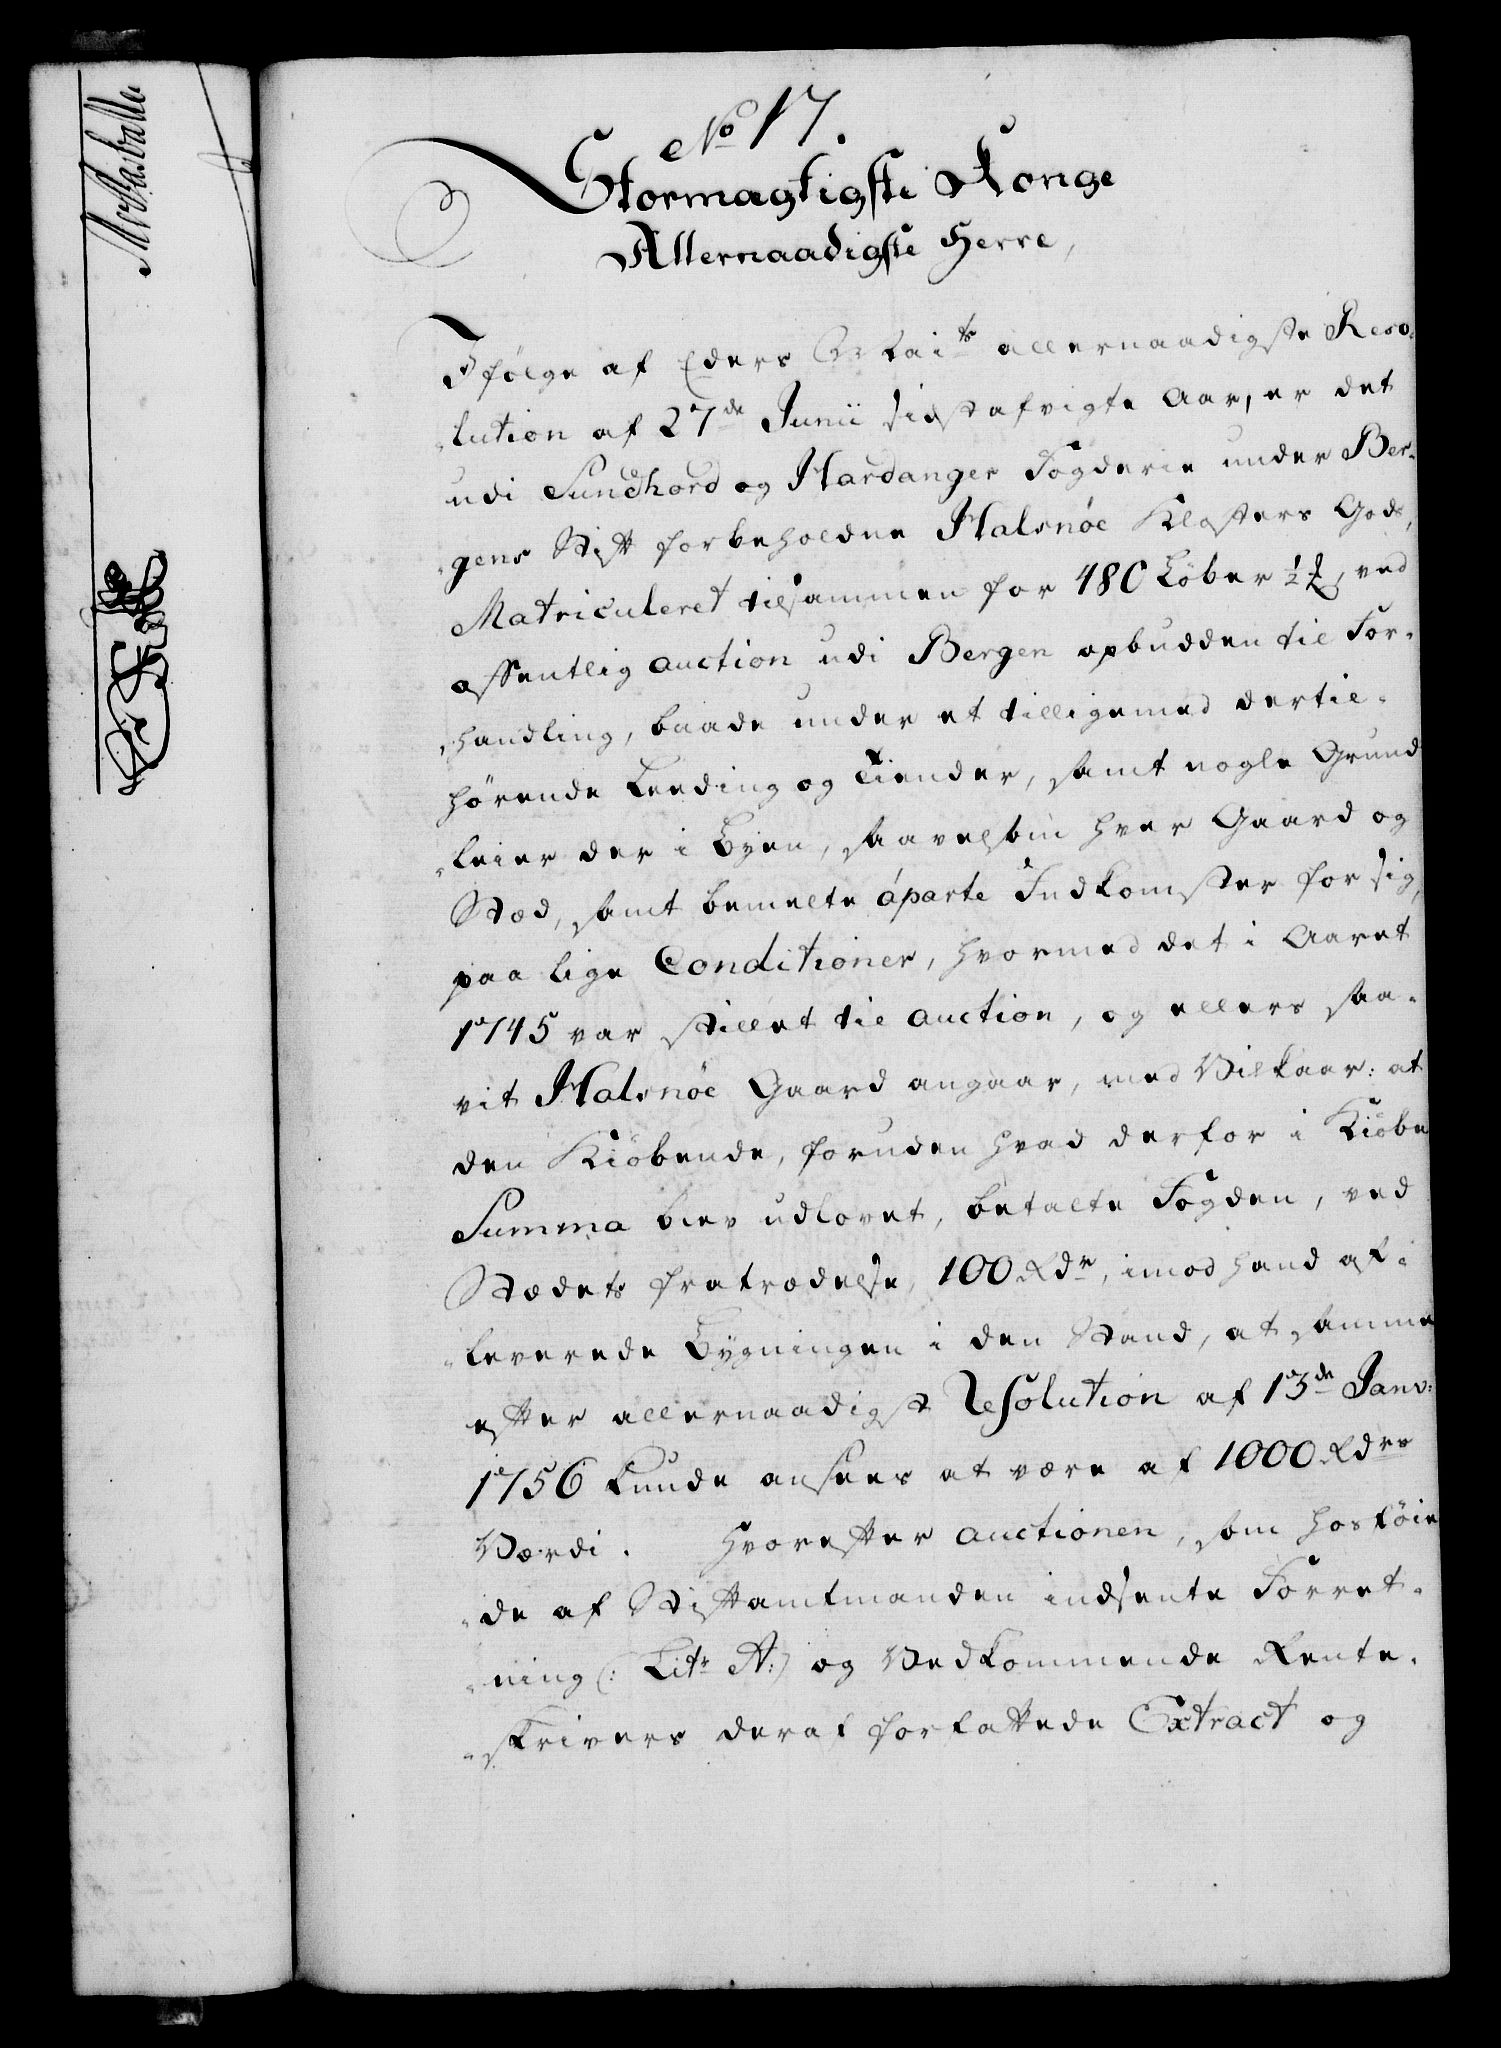 No 17.
Stormægtigste Konge
Allernaadigste Herre,
Ifølge af Eders Maits allernaadigste Reso-
lution af 27de Junii sidstafvigte Aar, er det
udi Sundhord og Hardanger Fogderie under Ber-
gens Stift forbeholdne Halsnöe Klosters Gods,
Matriculeret tilsammen for 480 Löber ½ , ved
offentlig auction udi Bergen opbudden til For-
handling, baade under et tilligemed dertil-
hörende Leeding og Tiender, samt nogle Grund
leier der i Byen, saavelsom hver Gaard og
Stæd, samt bemelte áparte Indkomster for sig,
paa lige Conditioner, hvormed det i Aaret
1745 var stillet til auction, og ellers saa-
vit Halsnöe Gaard angaar, med Vilkaar: at
den Kiöbende, foruden hvad derfor i Kiöbe
Summa blev udlovet, betalte Fogden, ved
Stædets fratrædelse, 100 Rdr, imod hand af-
leverede Bygningen i den Stand, at samme
efter allernaadigst Resolution af 13de Janv:
1756 kunde ansees at være af 1000 Rdrs
Værdi. Hvorefter auctionen, som hosföie
de af Stiftamtmanden indsente Forret-
ning (: Litr A:) og Vedkommende Rente-
skrivers deraf forfattede Extract og